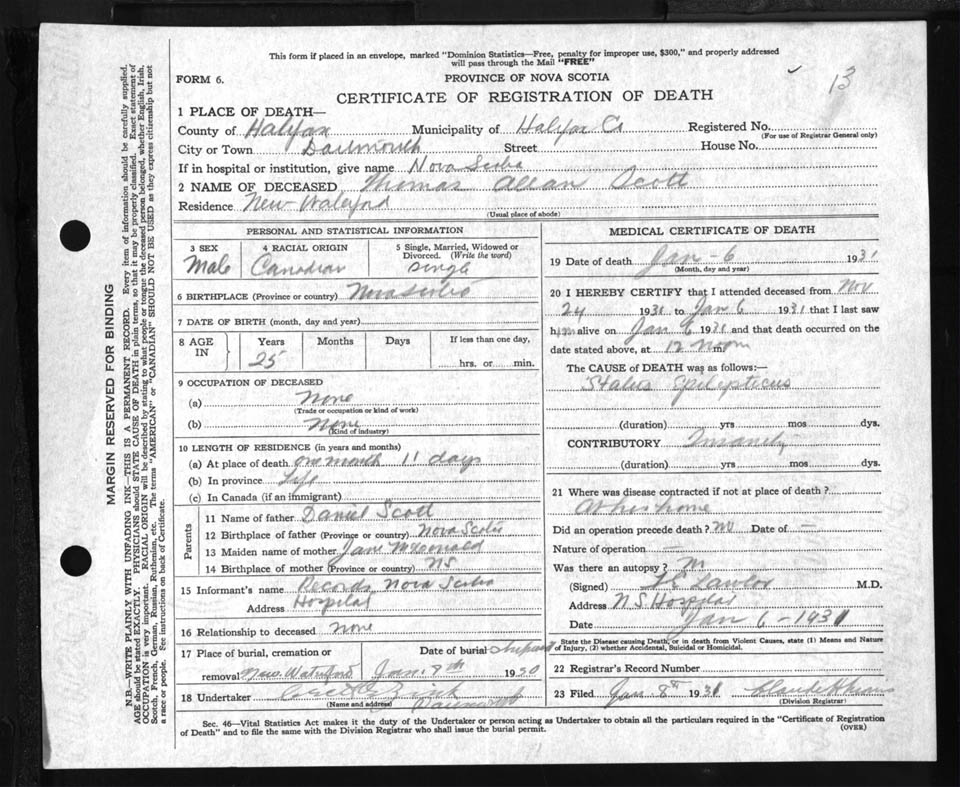 This form if placed in an envelope, marked "Dominion Statistics—Free, penalty for improper use, $300," and properly addressed
will pass through the Mail "FREE"
13
FORM 6.
PROVINCE OF NOVA SCOTIA
CERTIFICATE OF REGISTRATION OF DEATH
1 PLACE OF DEATH—
County of Halifax Municipality of Halifax Co Registered No.
(For use of Registrar General only)
City or Town Dartmouth Street House No.
If in hospital or institution, give name Nova Scotia
2 NAME OF DECEASED Thomas Allan Scott
Residence New Waterford
(Usual place of abode)
PERSONAL AND STATISTICAL INFORMATION
3 SEX 4 RACIAL ORIGIN 5 Single, Married, Widowed or
Divorced. (Write the word)
Male Canadian Single
6 BIRTHPLACE (Province or country) Nova Scotia
7 DATE OF BIRTH (month, day and year)
8 AGE IN Years Months Days If less than one day,
25 hrs. or min.
9 OCCUPATION OF DECEASED
(a) None
(Trade or occupation or kind of work)
(b) None
(Kind of industry)
10 LENGTH OF RESIDENCE (in years and months)
(a) At place of death one month 11 days
(b) In province Life
(c) In Canada (if an immigrant)
Parents
11 Name of father Daniel Scott
12 Birthplace of father (Province or country) Nova Scotia
13 Maiden name of mother Jane McDonald
14 Birthplace of mother (Province or country) NS
15 Informant's name Records Nova Scotia
Address Hospital
16 Relationship to deceased None
17 Place of burial, cremation or Date of burial
removal New Waterford Jan 8th 1930
18 Undertaker
(Name and address) Dartmouth
MEDICAL CERTIFICATE OF DEATH
19 Date of death Jan - 6 1931
(Month, day and year)
20 I HEREBY CERTIFY that I attended deceased from Nov
24 1930 to Jan 6 1931 that I last saw
him alive on Jan 6 1931 and that death occurred on
date stated above, at 12 noon m
The CAUSE of DEATH was as follows:—
Status Epilepticus
(duration) yrs mos dys.
CONTRIBUTORY Insanity
(duration) yrs mos dys.
21 Where was disease contracted if not at place of death?
At his home
Did an operation precede death? No Date of —
Nature of operation —
Was there an autopsy? No
(Signed) Lawlor M.D.
Address N.S. Hospital
Date Jan 6 - 1931
State the Disease causing Death, or in death from Violent Causes, state (1) Means and Nature
of Injury, (2) whether Accidental, Suicidal or Homicidal.
22 Registrar's Record Number
23 Filed Jan 8th 1931
(Division Registrar)
Sec. 46—Vital Statistics Act makes it the duty of the Undertaker or person acting as Undertaker to obtain all the particulars required in the "Certificate of Registration
of Death" and to file the same with the Division Registrar who shall issue the burial permit.
(OVER)
MARGIN RESERVED FOR BINDING
N.B.—WRITE PLAINLY WITH UNFADING INK—THIS IS A PERMANENT RECORD. Every item of information should be carefully supplied.
AGE should be stated EXACTLY. PHYSICIANS should STATE CAUSE OF DEATH in plain terms, so that it may be properly classified. Exact statement of
OCCUPATION is very important. RACIAL ORIGIN will be described by stating to what people or tongue the deceased person belonged, whether English, Irish,
Scotch, French, German, Russian, Ruthenian, etc. The terms "AMERICAN" or "CANADIAN" SHOULD NOT BE USED as they express citizenship but not
a race or people. See instructions on back of Certificate.